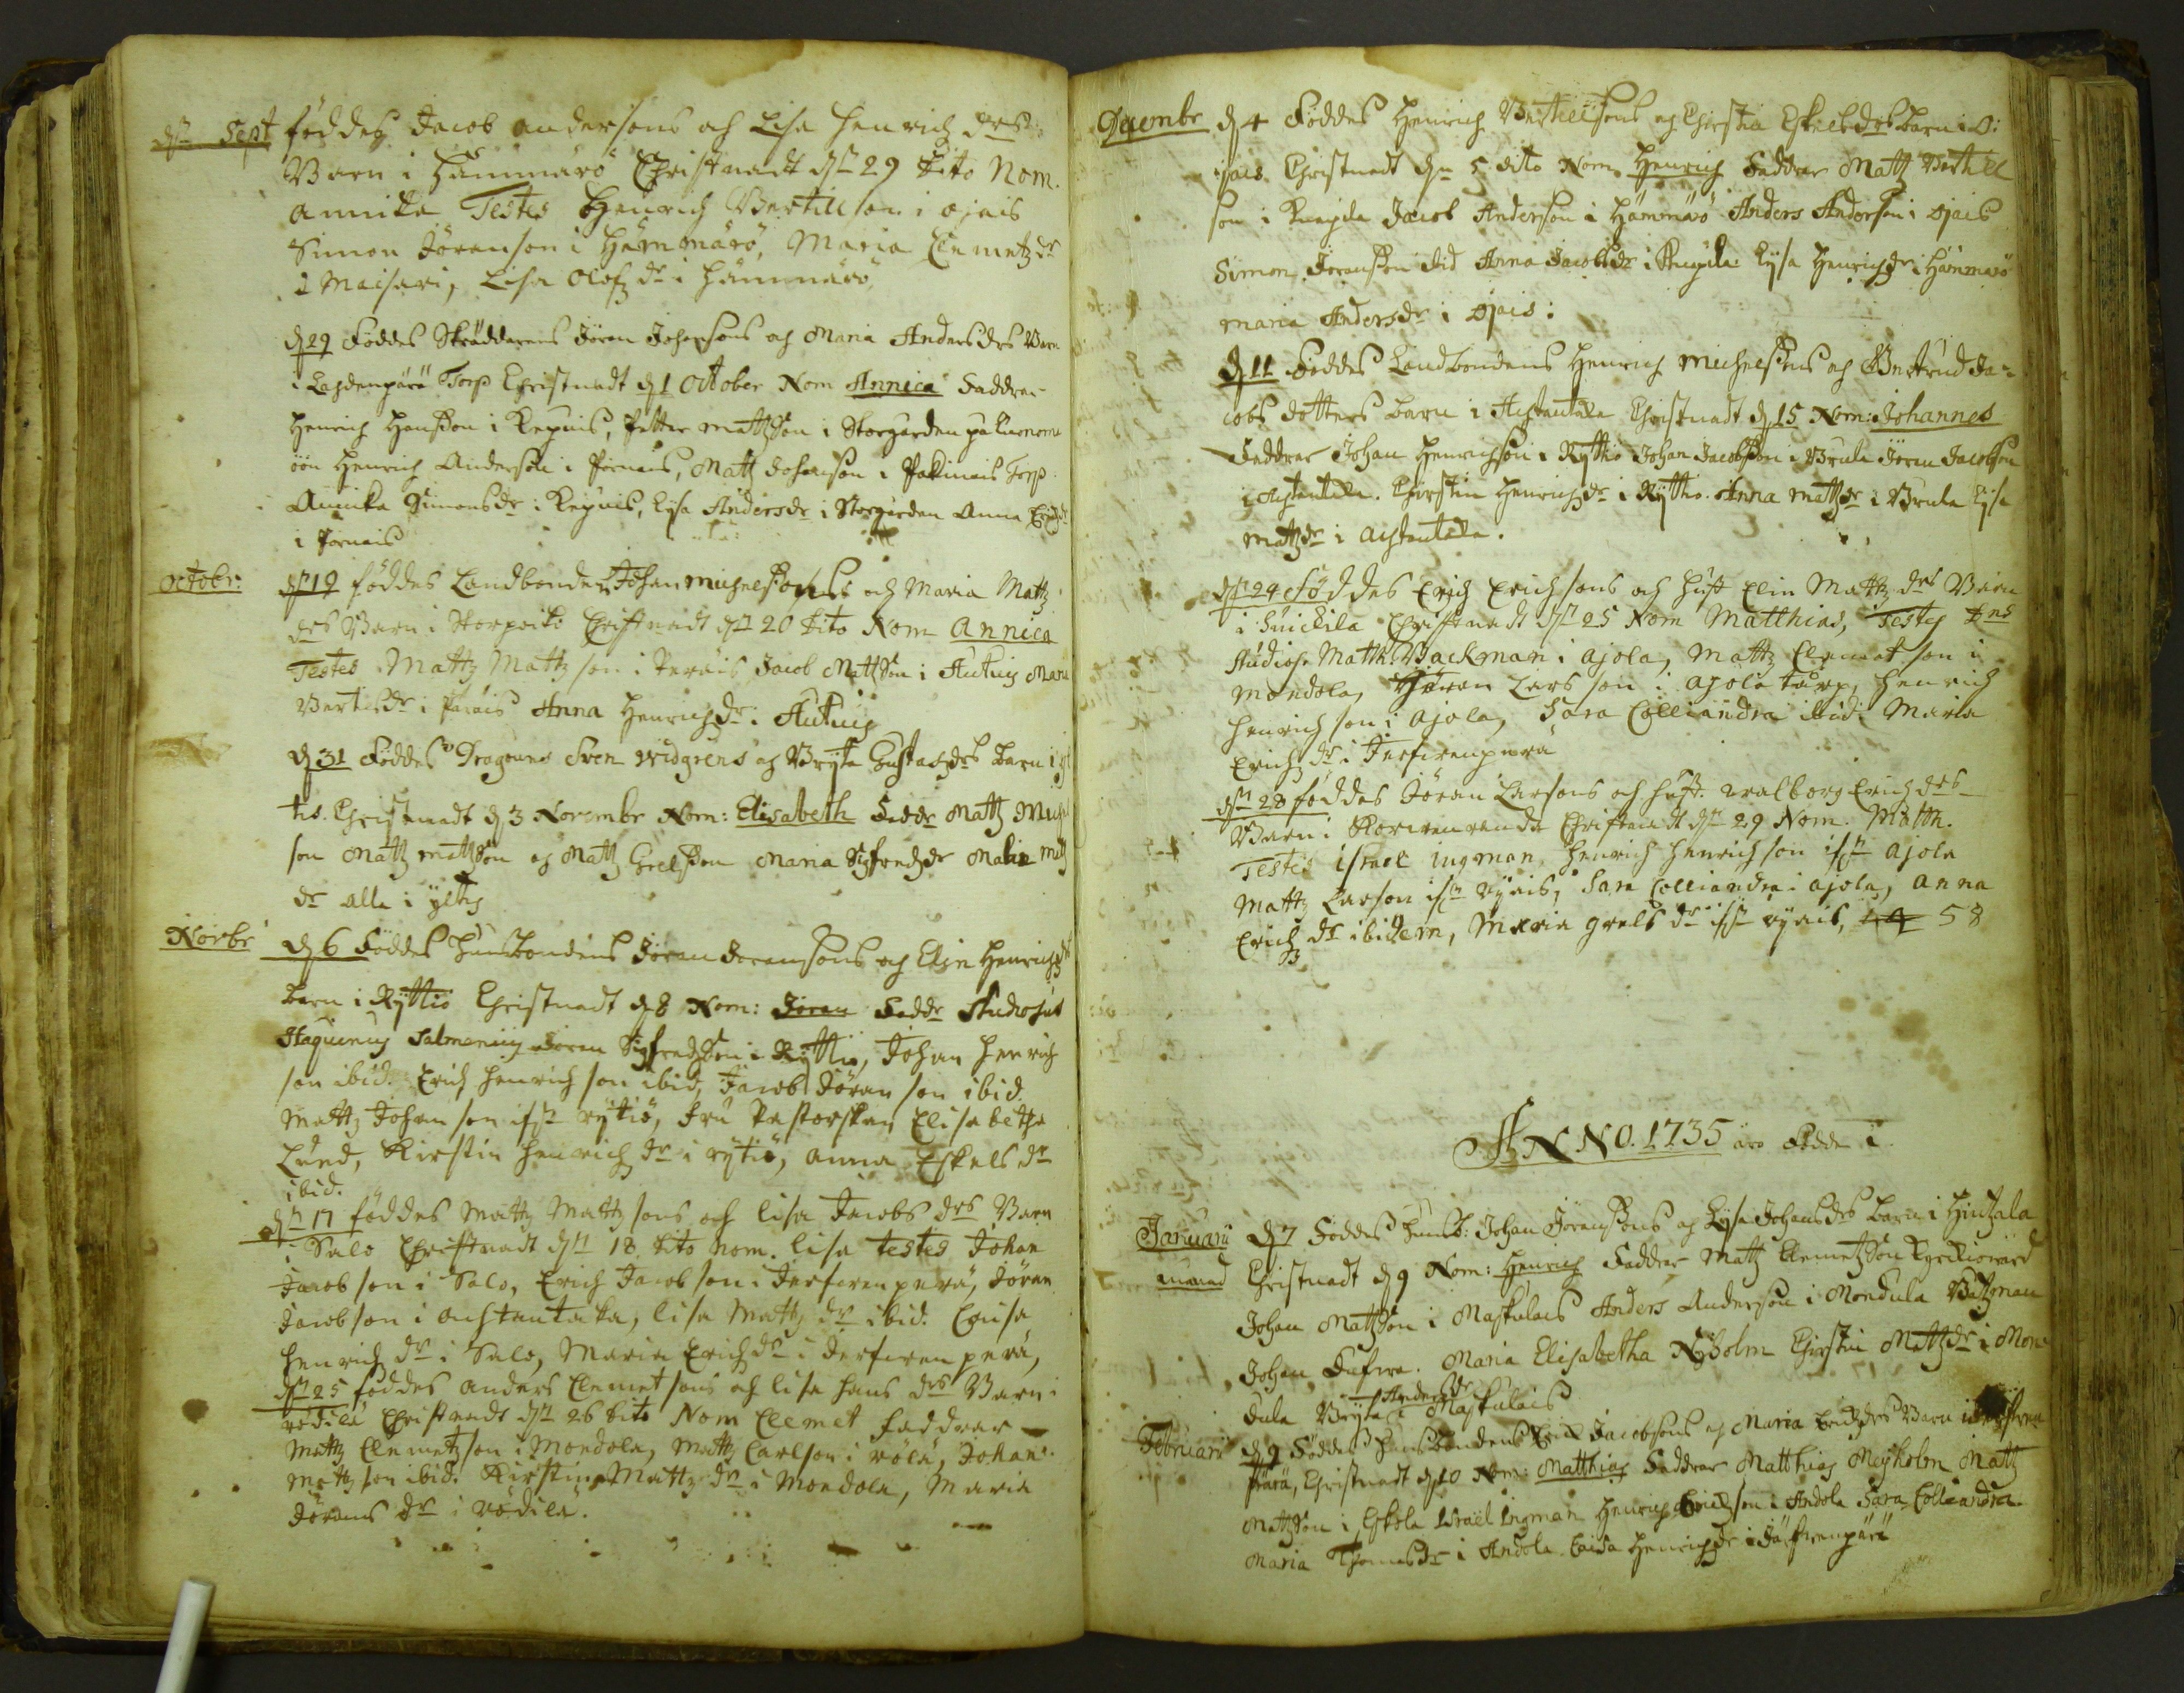 dn Sept föddes Jacob andersons och Lisa Henrich drs
Barn i Hämmärö Christnadt dn 29 dito Nom.
annika Testes Henrich Bertillson i ojais
Simon Jöranson i Hämmärö, Maria Clemetz dr
i Maisari, Lisa Olofz dr i Hämmärö
d 29 Föddes Skräddarens Jöran Johansons och Maria Anders drs Barn
i Torp Christnadt d 1 October Nom Annica Faddrar
Henrich Hansson i Kepuis, Petter Mattzson i Storgården på
öön Henrich Anderson i Pornais, Mattz Johanson i Torp
Annika Simonsdr i Kepuis, Lysa Andersdr i Storgården Anna
i Pornais
Octobr: dn 19 föddes Landbonden Johan Michelsons och Maria Mattz
drs Barn i Storpeito Christnadt dn 20 dito Nom Annica
Testes Mattz Mattz son i Jacob Mattsson i Maria
dr i Anna Henrichz dr i
d 31 Föddes Dragouns Sven Widgrens och Bryta Gustafz drs barn i
tis. Christnadt d 3 Novembr Nom: Elisabeth Faddr Mattz
son Mattz Mattzson och Mattz Grelsson Maria Sigfredz dr Malin
dr alla i yltis
Novbr d 6 Föddes Husbondens Jöran Joransons och Elin Henrichz
barn i Ryttiö Christnadt d 8 Nom: Jöran Faddr Studiosus
Haquinus Salmenius Jöran Sigfredzson i Ryttiö, Johan Henrich
son ibid. Erich Henrich son ibid, Jacob Jöran son ibid.
Mattz Johan son ifrn rytiö, fru Pastorskan Elisabetha
Lund, Kirstin Henrich dr i rytiö, anna Eskels dr
ibid.
dn 17 föddes Mattz Mattz sons och lisa Jacobs drs Barn
i Salo Christnadt dn 18 dito nom. lisa testes Johan
Jacob son i Salo, Erich Jacob son i Jerfwenperä, Jöran
Jacob son i anstantaka, lisa Mattz dr ibid. Caisa
Henrich dr i Salo, Maria Erich dr i Jerfwenperä,
dn 25 föddes anders Clemet sons och lisa Hans drs Barn i
rödilä Christnadt dn 26 dito Nom Clemet faddrar
Mattz Clemetz son i Mondola, Mattz Carlson i rölä, Johan
Mattz son ibid. Kirstin Mattz dr i Mondola, Maria
Jörans dr i rödilä.
Decembr d 4 Föddes Henrich Bertillsons och Chirstin Eskelsdrs barn i O:
jais. Christnadt dn 5 dito Nom. Henrich Faddrar Mattz Bertill
son i Jacob Anderson i Hämmärö Anders Anderson i Ojais
Simon Joransson ibid Anna Jacobsdr i Lysa Henrichzdr i Hämmärö
Maria Andersdr i Ojais:
d 11 Föddes Landbondens Henrich Michelsons och Gertrud Ja-
cobs dotters barn i Christnadt d 15 Nom: Johannes
Faddrar Johan Henrichson i Ryttiö Johan Jacobsson i Brula Jöran Jacobson
i Chirstin Henrichzdr i Ryttio. Anna Mattzdr i Brula Lysa
Mattzdr i
dn 24 Föddes Erich Erich sons och hust Elin Mattz drs Barn
i Christnadt dn 25 Nom Matthias, Testes Dns
studios. Matth. Backman i ajola, Mattz Clemet son i
Mondola, Jöran Lars son i ajola tårp, Henrich
Henrich son i ajola, Sara Colliandra ibid. Maria
Erich dr i Jerfwenperä
dn 28 föddes Jöran Larsons och hust. walborg Erich drs
Barn i Christnadt dn 29 Nom. Matth.
Testes Israel ingman, Henrich Henrich son ifrn ajola
Mattz Larson ifrn ryais, Sara Colliandra i ajola, anna
Erich dr ibidem, Maria grels dr ifrn ryais, 58
ANNO. 1735 äro Födde i
Januarii d 7 Föddes Husb: Johan Joranssons och Lysa Johansdrs barn i Hintzala
månad Christnadt d 9 Nom: Henrich Faddrar Mattz Clemetzson Kyrkiowärd
Johan Mattsson i Maskulais Anders Anderson i Mondula Båtzman
Johan Maria Elisabetha Nyholm Chirstin Mattzdr i Mon
dula Bryta Andersdr i Maskulais
Februari d 9 Föddes Husbondens Erich Jacobsons och Maria drs Barn i
Perä, Christnadt d 10 Nom: Matthias Faddrar Matthias Nyholm Mattz
Mattsson i Eskola Israël Ingman Henrich Erichson i Andola Sara Colleandra
Maria Thomasdr i Andola Caisa Henrichzdr i Jerfwenperä